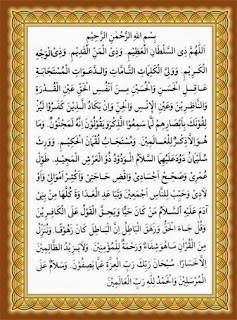 بِسْمِ اللهِ الرَّحْمٰنِ الرَّحِيْمِ
اَللّٰهُمَّ ذِى السُّلْطَانِ الْعَظِيْمِ. وَذِى الْمَنِّ الْقَدِيْمِ. وَذِى الْوَجْهِ
الْكَرِيْمِ. وَوَلِيِّ الْكَلِمَاتِ التَّآمَّاتِ وَالدَّعَوَاتِ الْمُسْتَجَابَةِ
عَاقِلِ الْحَسَنِ وَالْحُسَيْنِ مِنْ اَنْفُسِ الْحَقِّ عَيْنِ الْقُدْرَةِ
وَالنَّاظِرِيْنَ وَعَيْنِ الْاِنْسِ وَالْجِنِّ وَاِنْ يَكَادُ الَّذِيْنَ كَفَرُوْا لَيُزْ
لِقُوْنَكَ بِاَبْصَارِهِمْ لَمَّا سَمِعُوا الذِّكْرَ وَيَقُوْلُوْنَ اِنَّهُ لَمَجْنُوْنٌ. وَمَا
هُوَ اِلَّا ذِكْرٌ لِلْعَالَمِيْنَ. وَمُسْتَجَابُ لُقْمَانَ الْحَكِيْمِ. وَوَرِثَ
سُلَيْمَانُ دَاوُدَ عَلَيْهِمَا السَّلَامُ الْوَدُوْدُ ذُو الْعَرْشِ الْمَجِيْدِ. طَوِّلْ
عُمْرِيْ وَصَحِّحْ اَجْسَادِيْ وَاقْضِ حَاجَتِيْ وَاَكْثِرْ اَمْوَالِيْ وَاَوْ
لَادِيْ وَحَبِّبْ لِلنَّاسِ اَجْمَعِيْنَ وَتَبَاعَدِ الْعَدَاوَةَ كُلَّهَا مِنْ بَنِيْ
آدَمَ عَلَيْهِ السَّلَامُ مَنْ كَانَ حَيًّا وَيَحِقَّ الْقَوْلُ عَلَى الْكَافِرِيْنَ
وَقُلْ جَاءَ الْحَقُّ وَزَهَقَ الْبَاطِلُ اِنَّ الْبَاطِلَ كَانَ زَهُوْقًا. وَنُنَزِّلُ
مِنَ الْقُرْاٰنِ مَا هُوَ شِفَاءٌ وَرَحْمَةٌ لِلْمُؤْمِنِيْنَ. وَلَا يَزِيْدُ الظَّالِمِيْنَ
اِلَّا خَسَارًا. سُبْحَانَ رَبِّكَ رَبِّ الْعِزَّةِ عَمَّا يَصِفُوْنَ. وَسَلَامٌ عَلَى
الْمُرْسَلِيْنَ وَالْحَمْدُ لِلّٰهِ رَبِّ الْعَالَمِيْنَ.